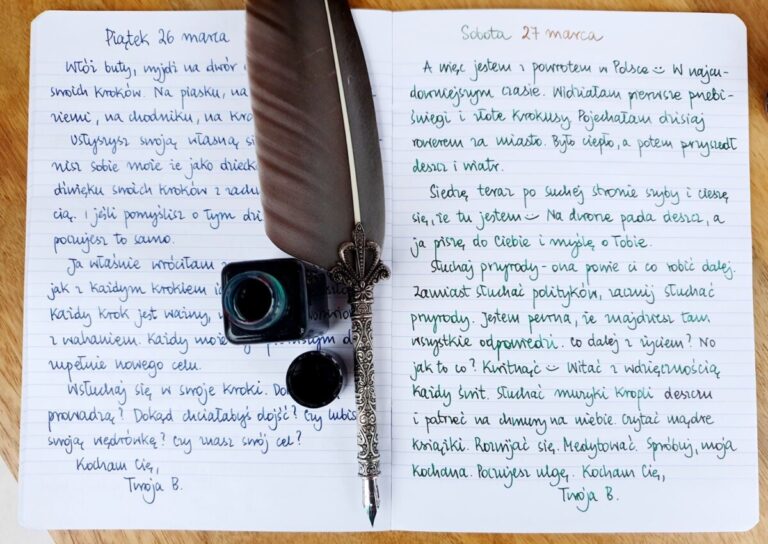 Piątek 26 marca
Włóż buty, wyjdź na dwór
swoich kroków. Na piasku, na
ziemi, na chodniku, na
Usłyszysz swoją własną
nisz sobie może że jako
dźwięku swoich kroków z
cią. I jeśli pomyślisz o tym
poczujesz to samo.
Ja właśnie wróciłam z
jak z każdym krokiem
Każdy krok jest ważny,
z wahaniem. Każdy może
zupełnie nowego celu.
Wsłuchaj się w swoje kroki.
prowadzą? Dokąd chciałabyś dojść? Czy lubisz
swoją wędrówkę? Czy znasz swój cel?
Kocham Cię,
Twoja B.
Sobota 27 marca
A więc jestem z powrotem w Polsce W najcu-
downiejszym czasie. Widziałam pierwsze przebi-
śniegi i złote krokusy Pojechałam dzisiaj
rowerem za miasto. Było ciepło, a potem przyszedł
deszcz i wiatr.
Siedzę teraz po suchej stronie szyby i cieszę
się, że tu jestem Na dworze pada deszcz, a
ja piszę do Ciebie i myślę o Tobie.
Słuchaj przyrody - ona powie ci co robić dalej.
Zamiast słuchać polityków, zacznij słuchać
przyrody. Jestem pewna, że znajdziesz tam
wszystkie odpowiedzi. Co dalej z życiem? No
jak to co? Kwitnąć Witać z wdzięcznością
każdy świt. Słuchać muzyki kropli deszczu
i patrzeć na chmury na niebie. Czytać mądre
książki. Rozwijać się. Medytować. Spróbuj, moja
Kochana. Poczujesz ulgę. Kocham Cię,
Twoja B.